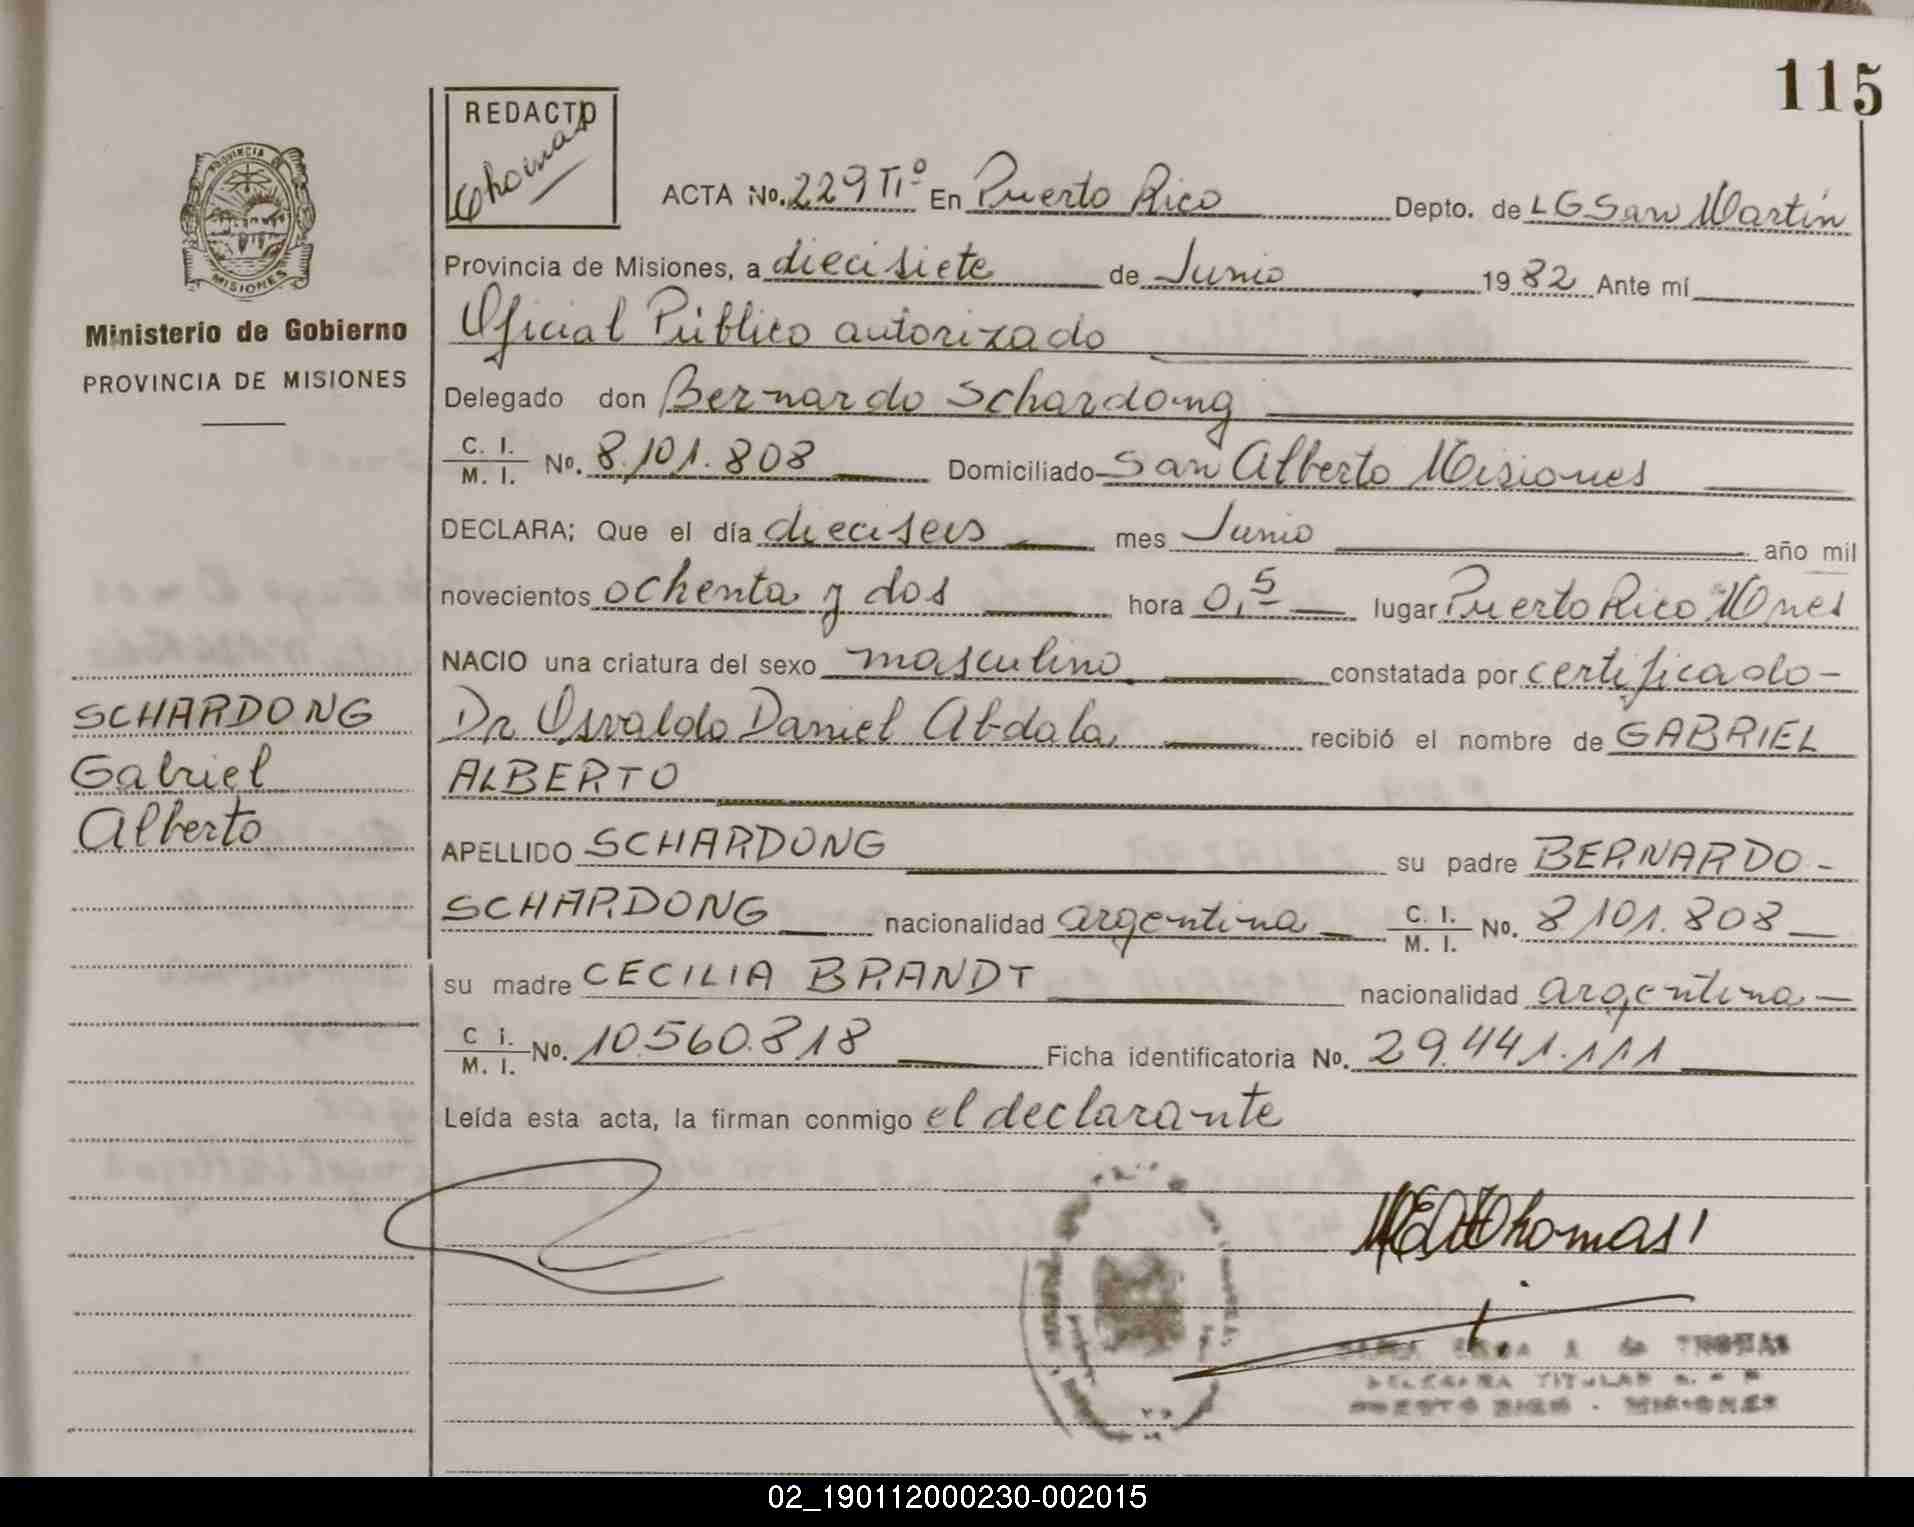 115
REDACTO
Thomas
PROVINCIA
MISIONES
Ministerio de Gobierno
PROVINCIA DE MISIONES
ACTA No. 229 Tº En Puerto Rico Depto. de LG San Martín
Provincia de Misiones, a diecisiete de Junio 1982 Ante mí
Oficial Público autorizado
Delegado don Bernardo Schardong
C. I. / M. I. No. 8.101.808 Domiciliado San Alberto Misiones
DECLARA; Que el día dieciseis mes Junio año mil
novecientos ochenta y dos hora 0,5 lugar Puerto Rico Mnes
NACIO una criatura del sexo masculino constatada por certificado
Dr Osvaldo Daniel Abdala recibió el nombre de GABRIEL
ALBERTO
SCHARDONG
Gabriel
Alberto
APELLIDO SCHARDONG su padre BERNARDO
SCHARDONG nacionalidad argentina C. I. / M. I. No. 8101.808
su madre CECILIA BRANDT nacionalidad argentina
C I. / M. I. No. 10.560.818 Ficha identificatoria No. 29.441.111
Leída esta acta, la firman conmigo el declarante
Thomas
de THOMAS
DELEGADA TITULAR
PUERTO RICO - MISIONES
02_190112000230-002015